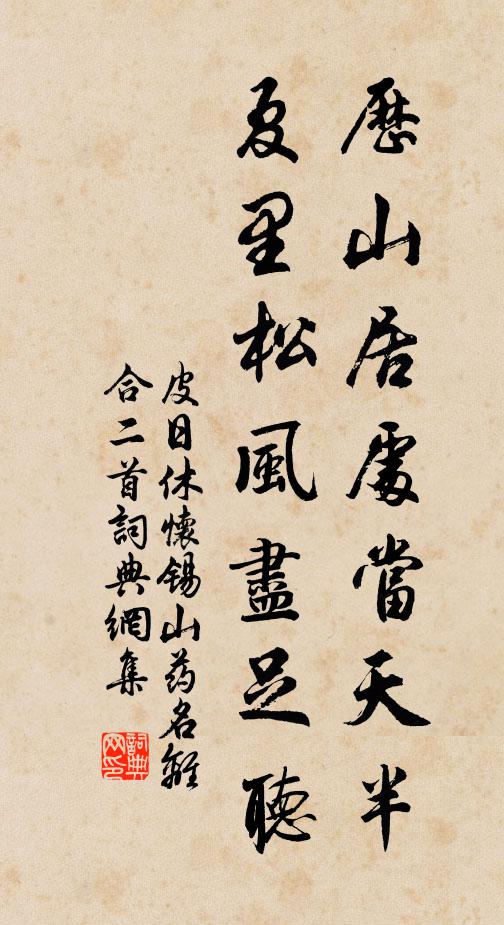 歷山居處當天半
夏里松風盡足聽
皮日休懷錫山药名離
合二首詞典網集
詞典
网印